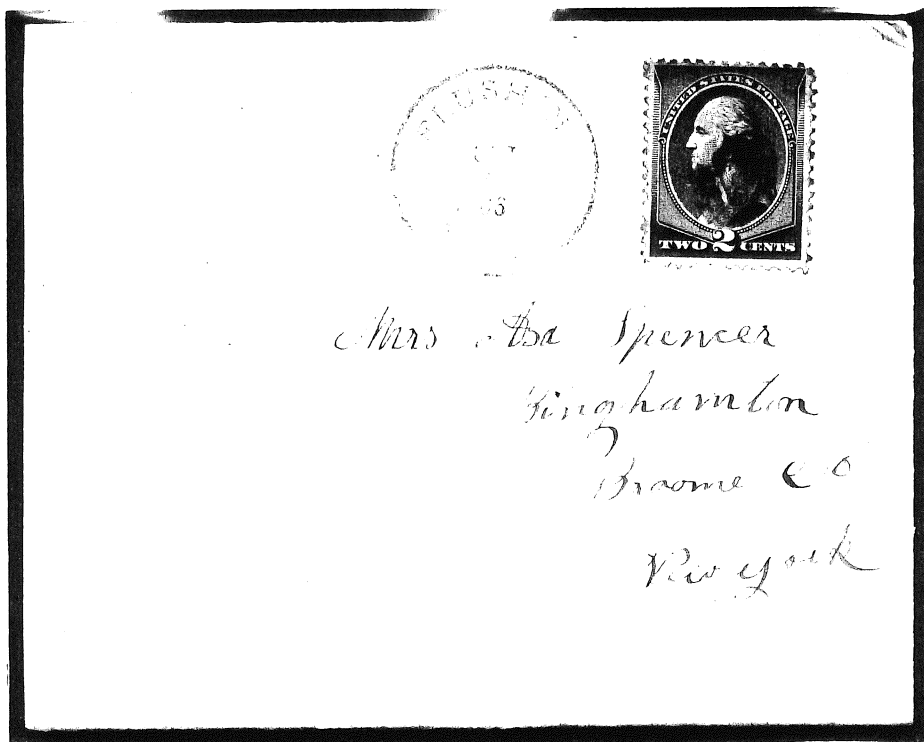 UNITED STATES POSTAGE
TWO 2 CENTS
Mrs Asa Spencer
Binghamton
Broome Co
New York